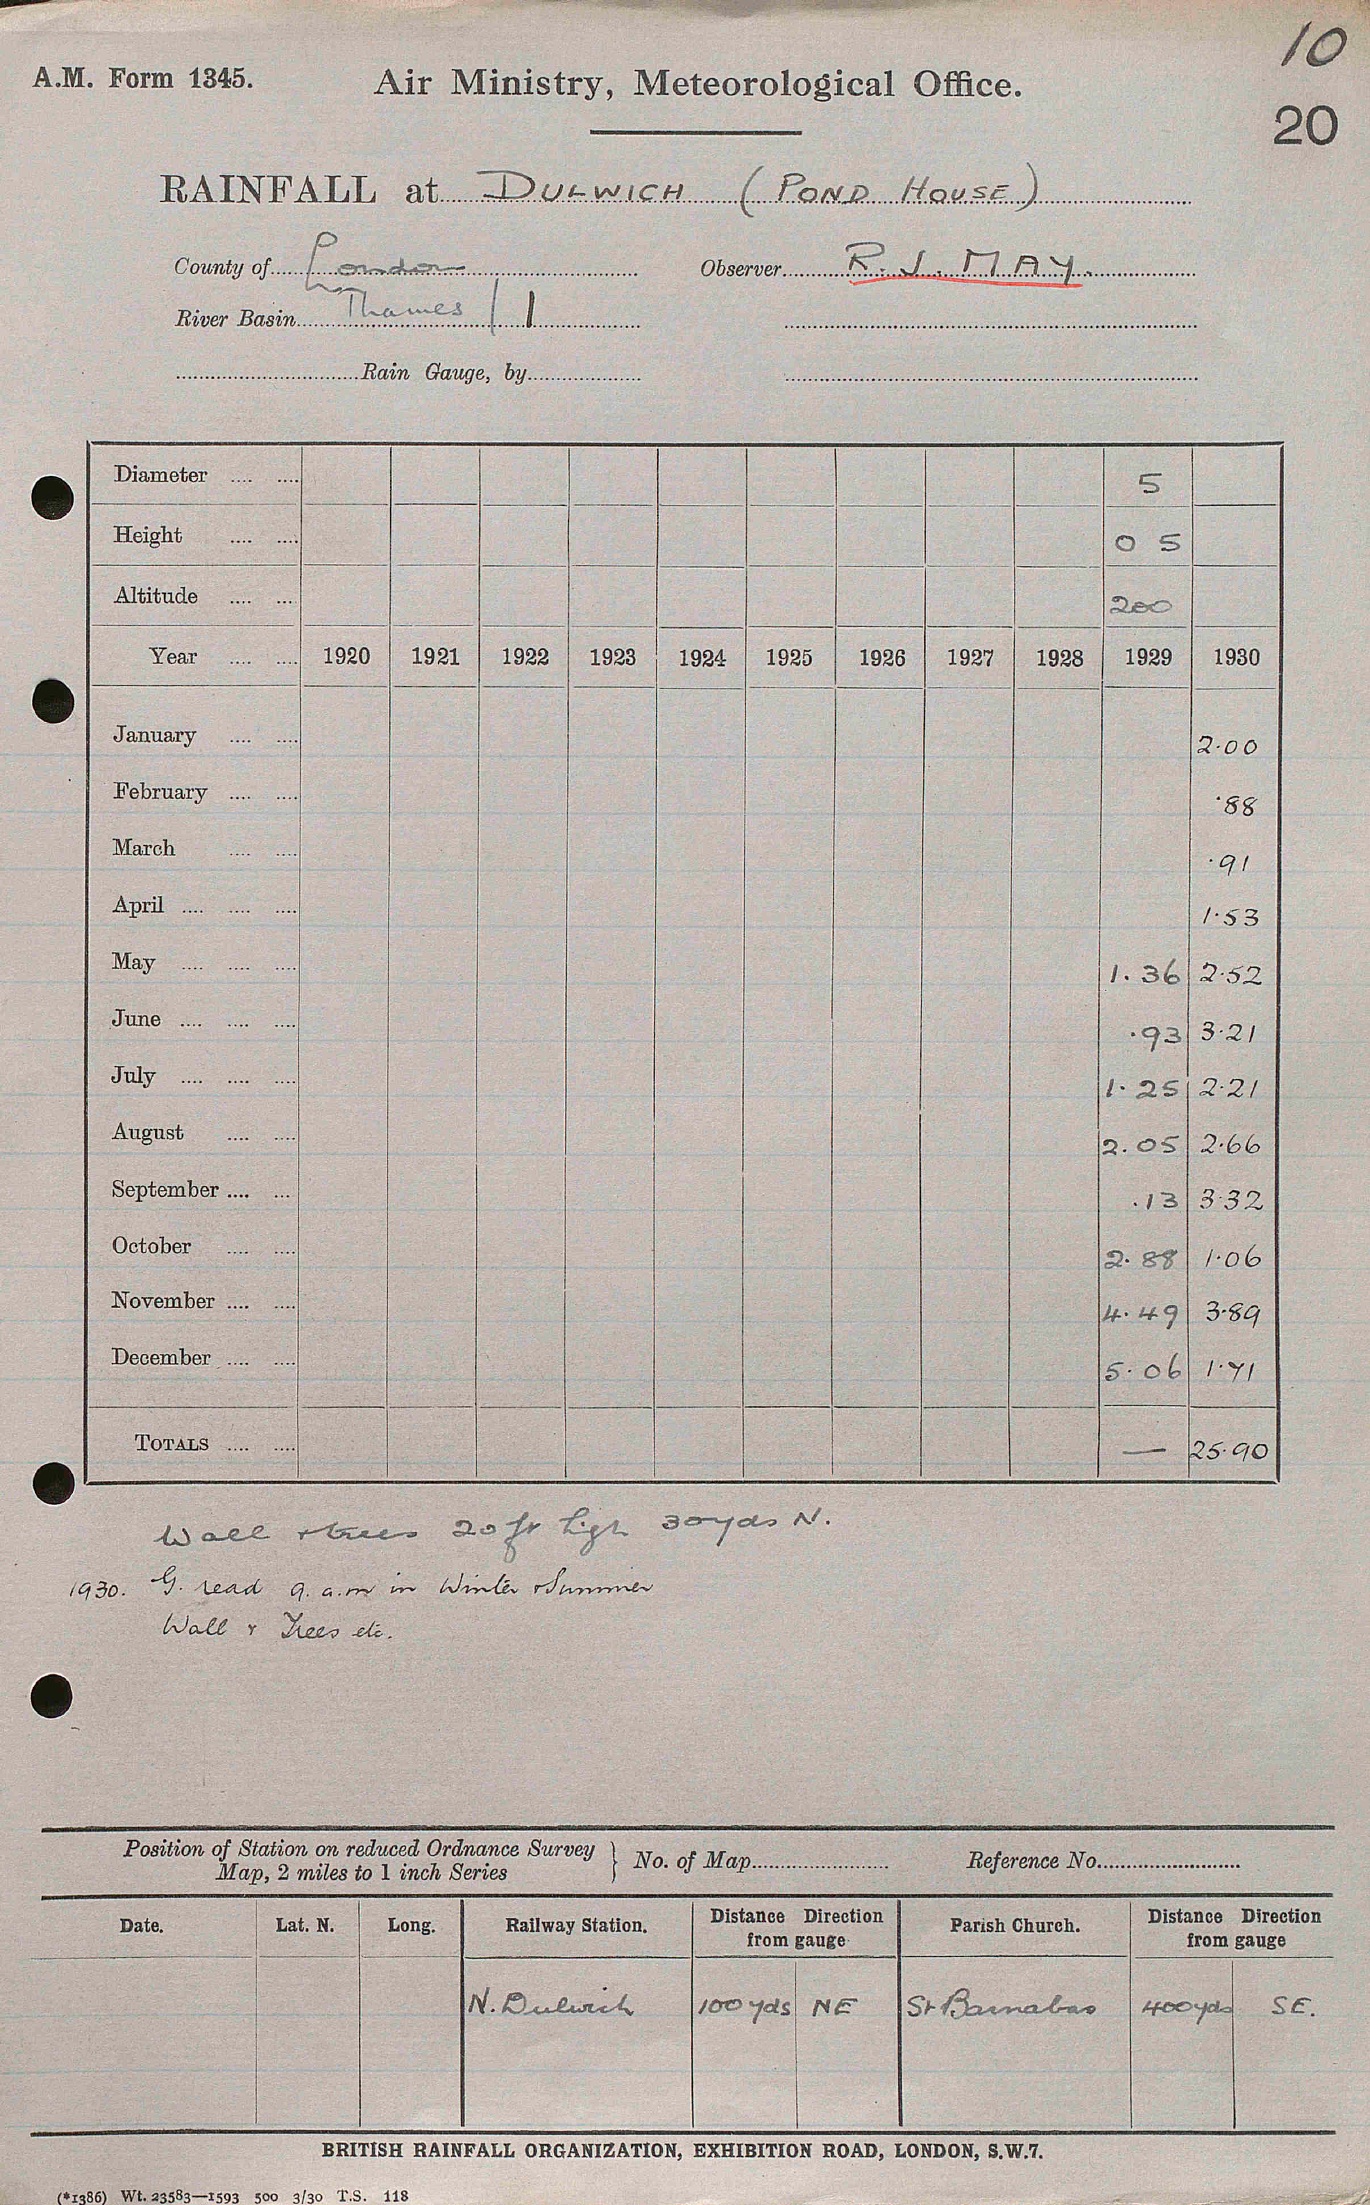 10
A.M. Form 1345. Air Ministry, Meteorological Office.
20
RAINFALL at DULWICH (POND HOUSE)
County of London Observer R. J. MAY.
River Basin Thames / 1
Rain Gauge, by
Diameter .... .... 5
Height .... .... 0 5
Altitude .... .... 200
Year .... .... 1920 1921 1922 1923 1924 1925 1926 1927 1928 1929 1930
January .... .... 2.00
February .... .... .88
March .... .... .91
April .... .... .... 1.53
May .... .... .... 1.36 2.52
June .... .... .... .93 3.21
July .... .... .... 1.25 2.21
August .... .... 2.05 2.66
September .... .... .13 3.32
October .... .... 2.88 1.06
November .... .... 4.49 3.89
December .... .... 5.06 1.71
TOTALS .... .... — 25.90
Wall + trees 20 ft high 30 yds N.
1930. G. read 9. a.m in Winter + Summer
Wall + Trees etc.
Position of Station on reduced Ordnance Survey
Map, 2 miles to 1 inch Series } No. of Map Reference No.
Date. Lat. N. Long. Railway Station. Distance Direction from gauge Parish Church. Distance Direction from gauge
N. Dulwich 100 yds NE St Barnabas 400 yds SE.
BRITISH RAINFALL ORGANIZATION, EXHIBITION ROAD, LONDON, S.W.7.
(*1386) Wt. 23583—1593 500 3/30 T.S. 118